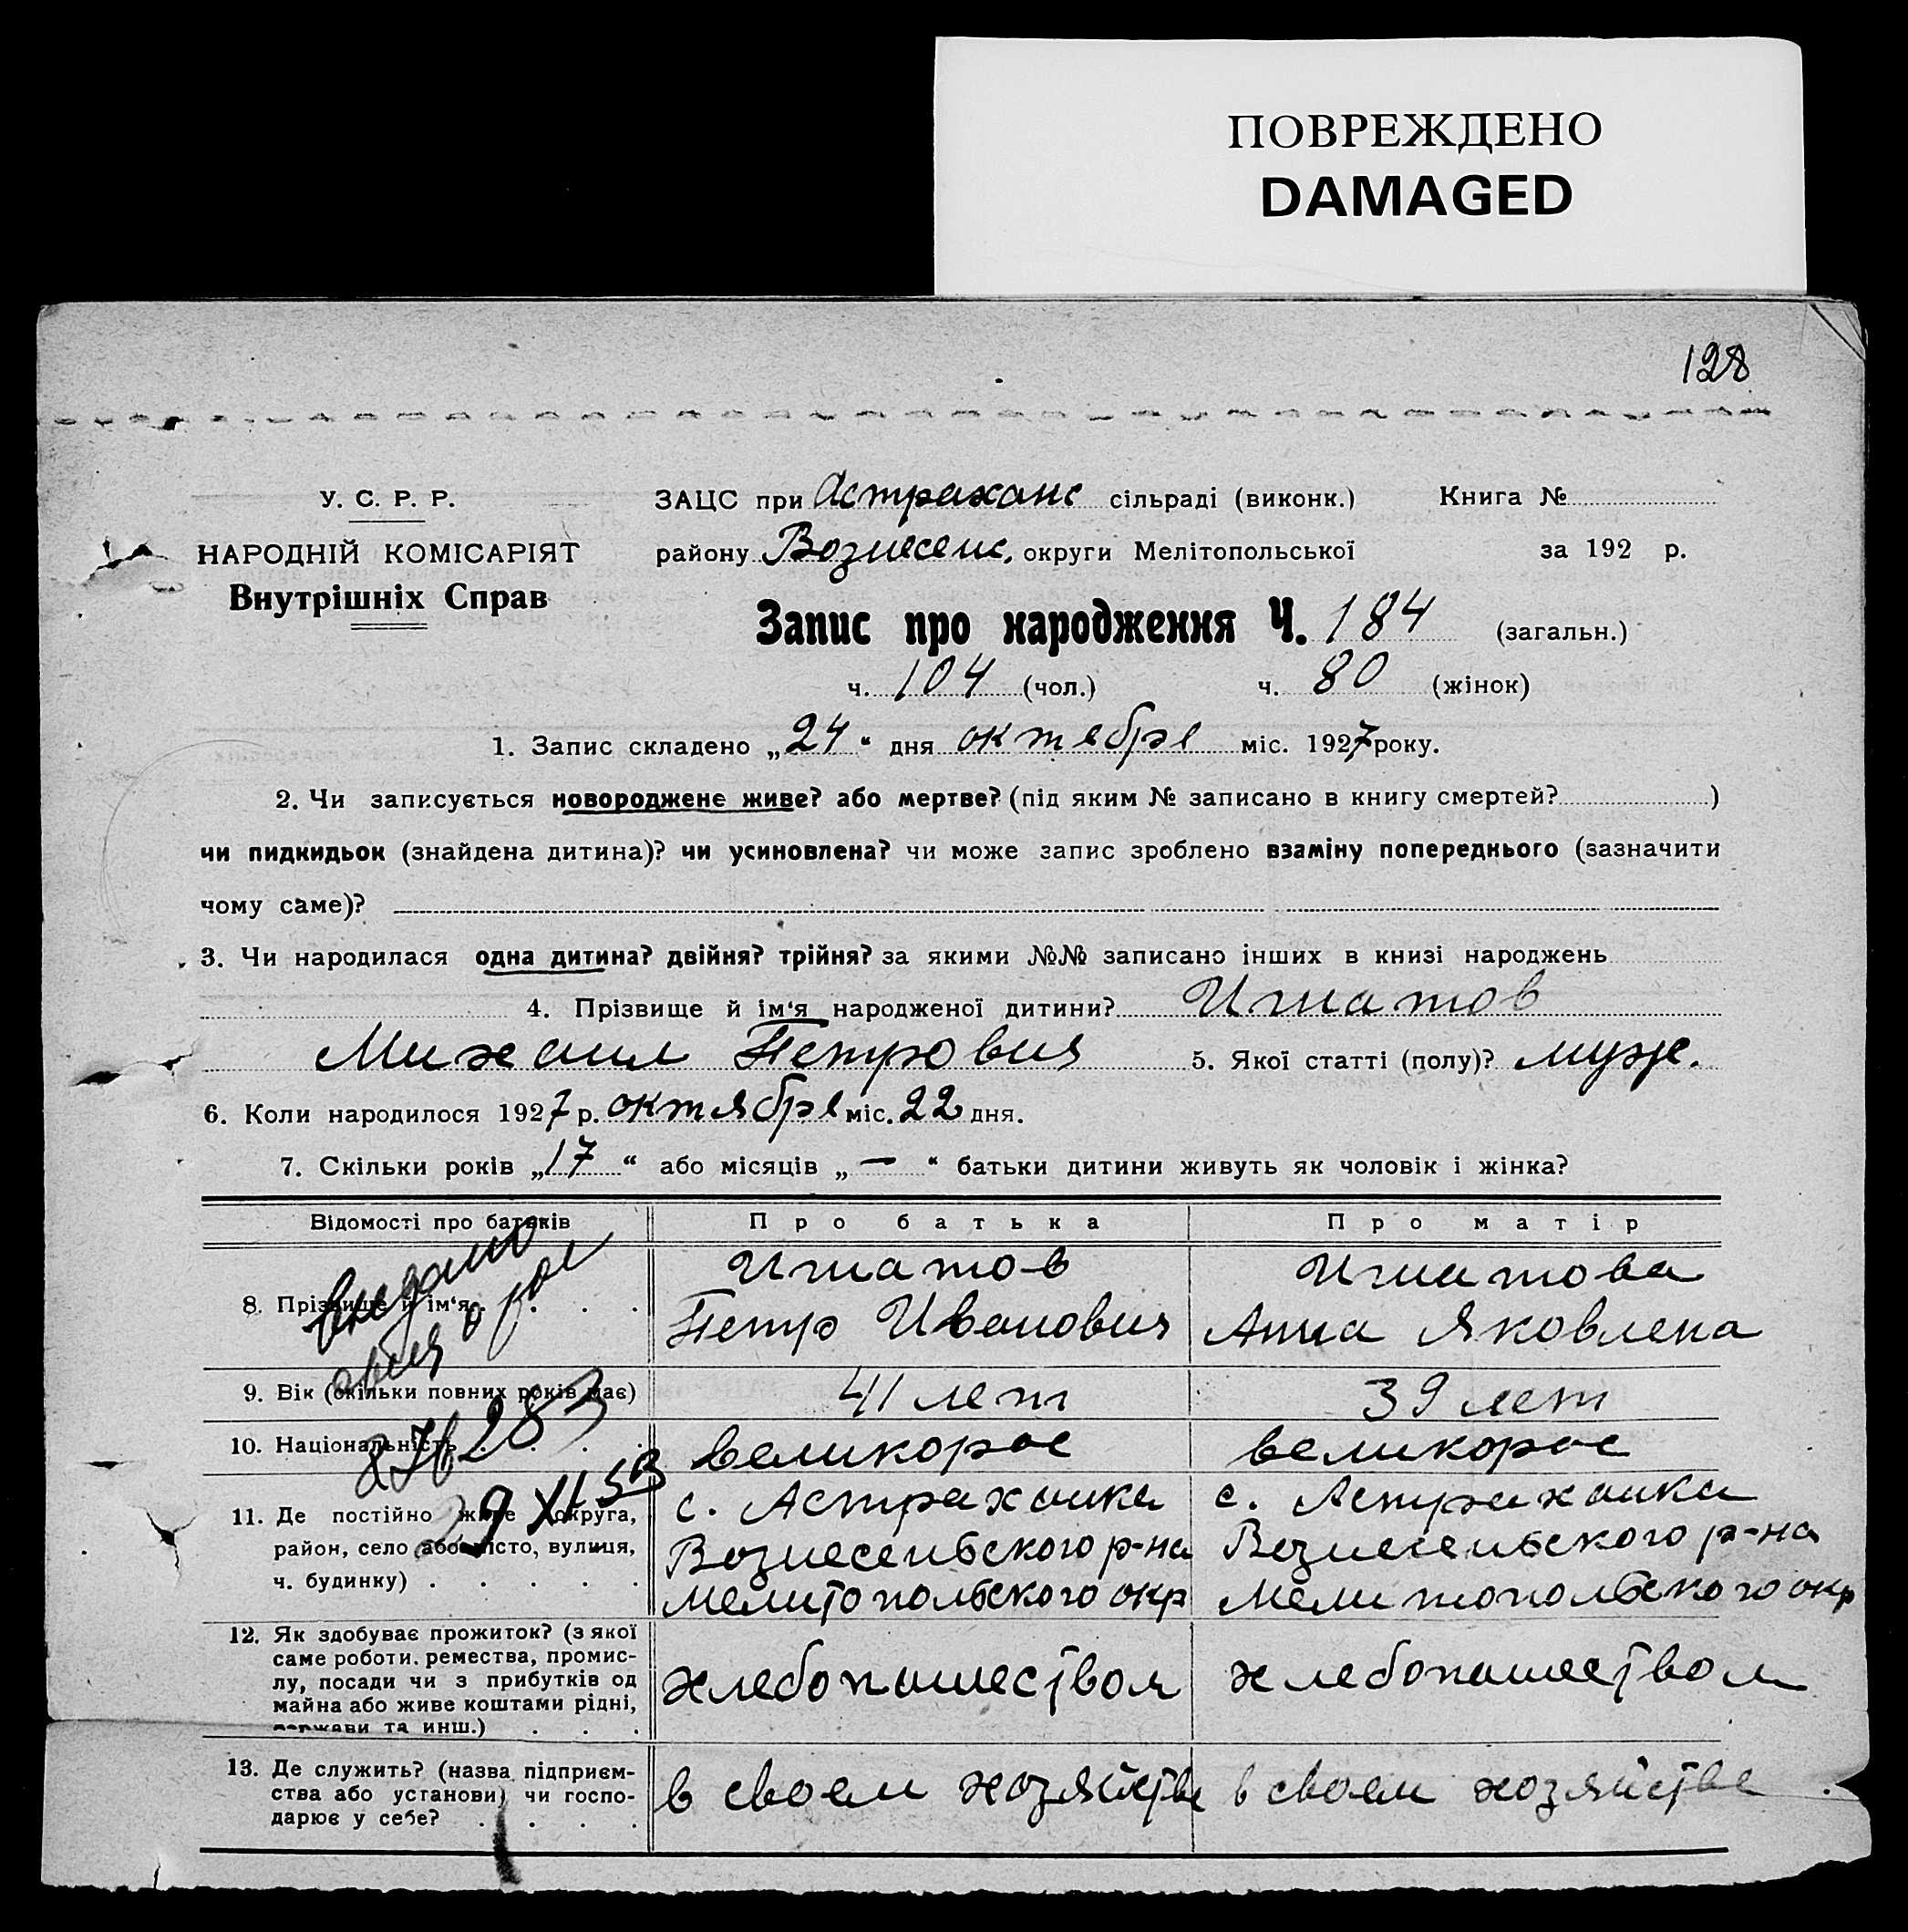 ПОВРЕЖДЕНО
DAMAGED
128
У. С. Р. Р.
НАРОДНІЙ КОМІСАРІЯТ
Внутрішніх Справ
ЗАЦС при Астраханс сільраді (виконк.) Книга №
району Вознесенс. округи Мелітопольської за 192 р.
Запис про народження Ч. 184 (загальн.)
ч. 104 (чол.) ч. 80 (жінок)
1. Запис складено „24“ дня октября міс. 1927 року.
2. Чи записується новороджене живе? або мертве? (під яким № записано в книгу смертей? )
чи пидкидьок (знайдена дитина)? чи усиновлена? чи може запис зроблено взаміну попереднього (зазначити
чому саме)?
3. Чи народилася одна дитина? двійня? трійня? за якими №№ записано інших в книзі народжень
4. Прізвище й ім‘я народженої дитини? Игнатов
Михаил Петрович 5. Якої статті (полу)? муж.
6. Коли народилося 1927 р. октября міс. 22 дня.
7. Скільки років „17“ або місяців „—“ батьки дитини живуть як чоловік і жінка?
Відомості про батьків Про батька Про матір
8. Прізвище й ім‘я . . . .
Игнатов
Петр Иванович
Игнатова
Анна Яковлена
9. Вік (скільки повних років має) 41 лет 39 лет
10. Національність . . . . великорос великорос
11. Де постійно живе (округа,
район, село або місто, вулиця,
ч. будинку) . . . . .
с. Астраханка
Вознесеньского р-на
Мелитопольского окр
с. Астраханка
Вознесеньского р-на
Мелитопольского окр
12. Як здобуває прожиток? (з якої
саме роботи. ремества, промис-
лу, посади чи з прибутків од
майна або живе коштами рідні,
держави та инш.) . . .
хлебопашеством
хлебопашеством
13. Де служить? (назва підприєм-
ства або установи) чи госпо-
дарює у себе? . . . . .
в своем хозяйстве
в своем хозяйстве
29 XI 53